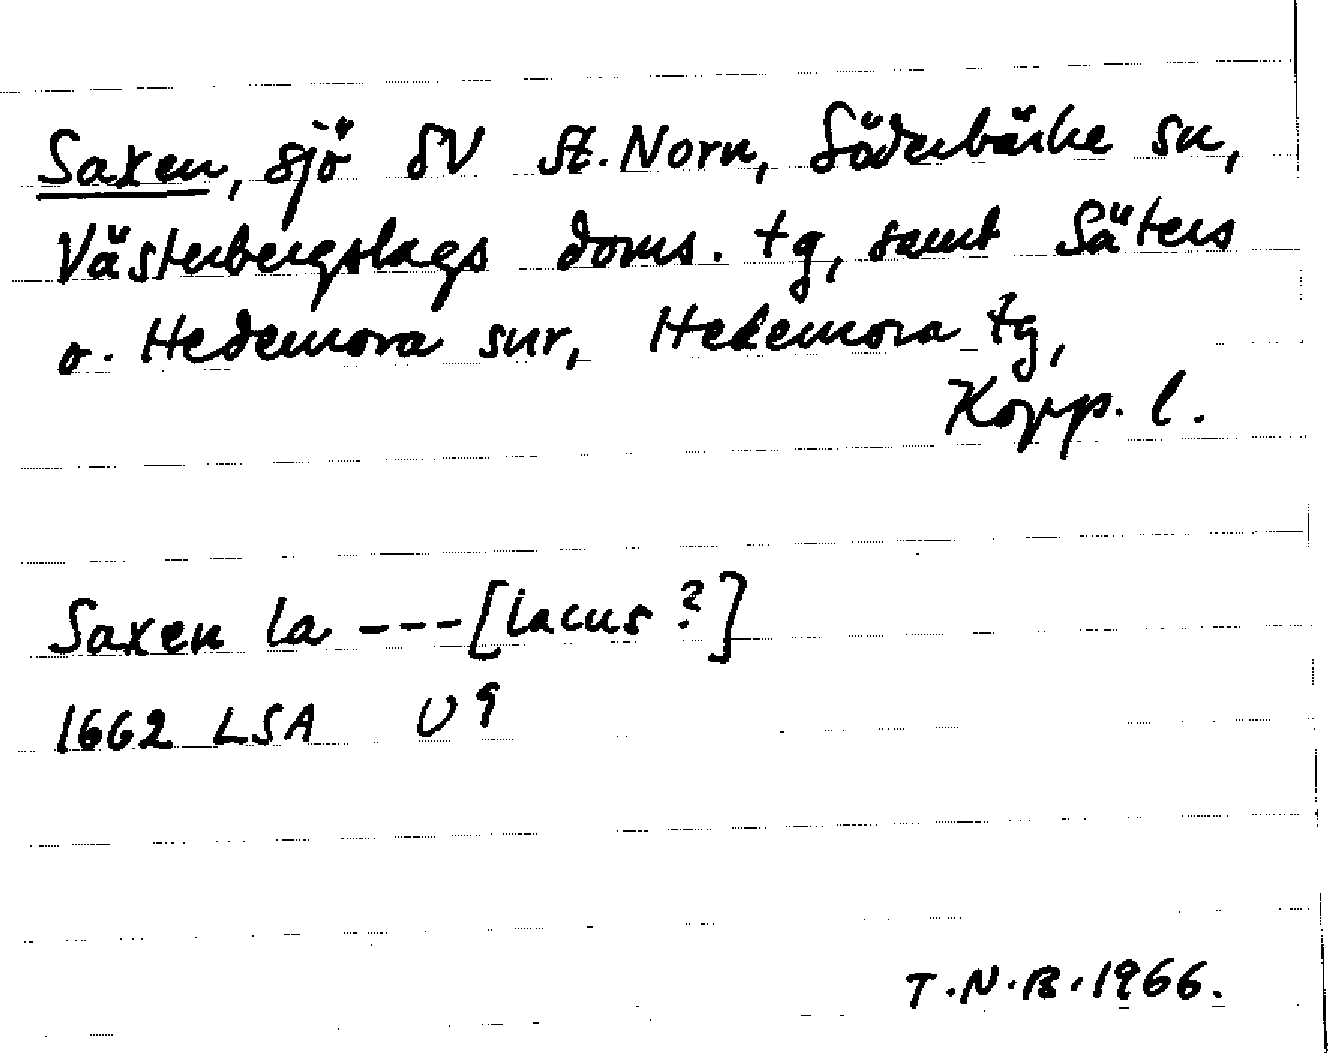 Saxen, sjö SV St. Norn, Söderbärke sn,
Västerbergslags doms. tg, samt Säters
o. Hedemora snr, Hedemora tg,
Kopp. l.
Saxen la ---[lacus?]
1662 LSA U9
T.N.B. 1966.